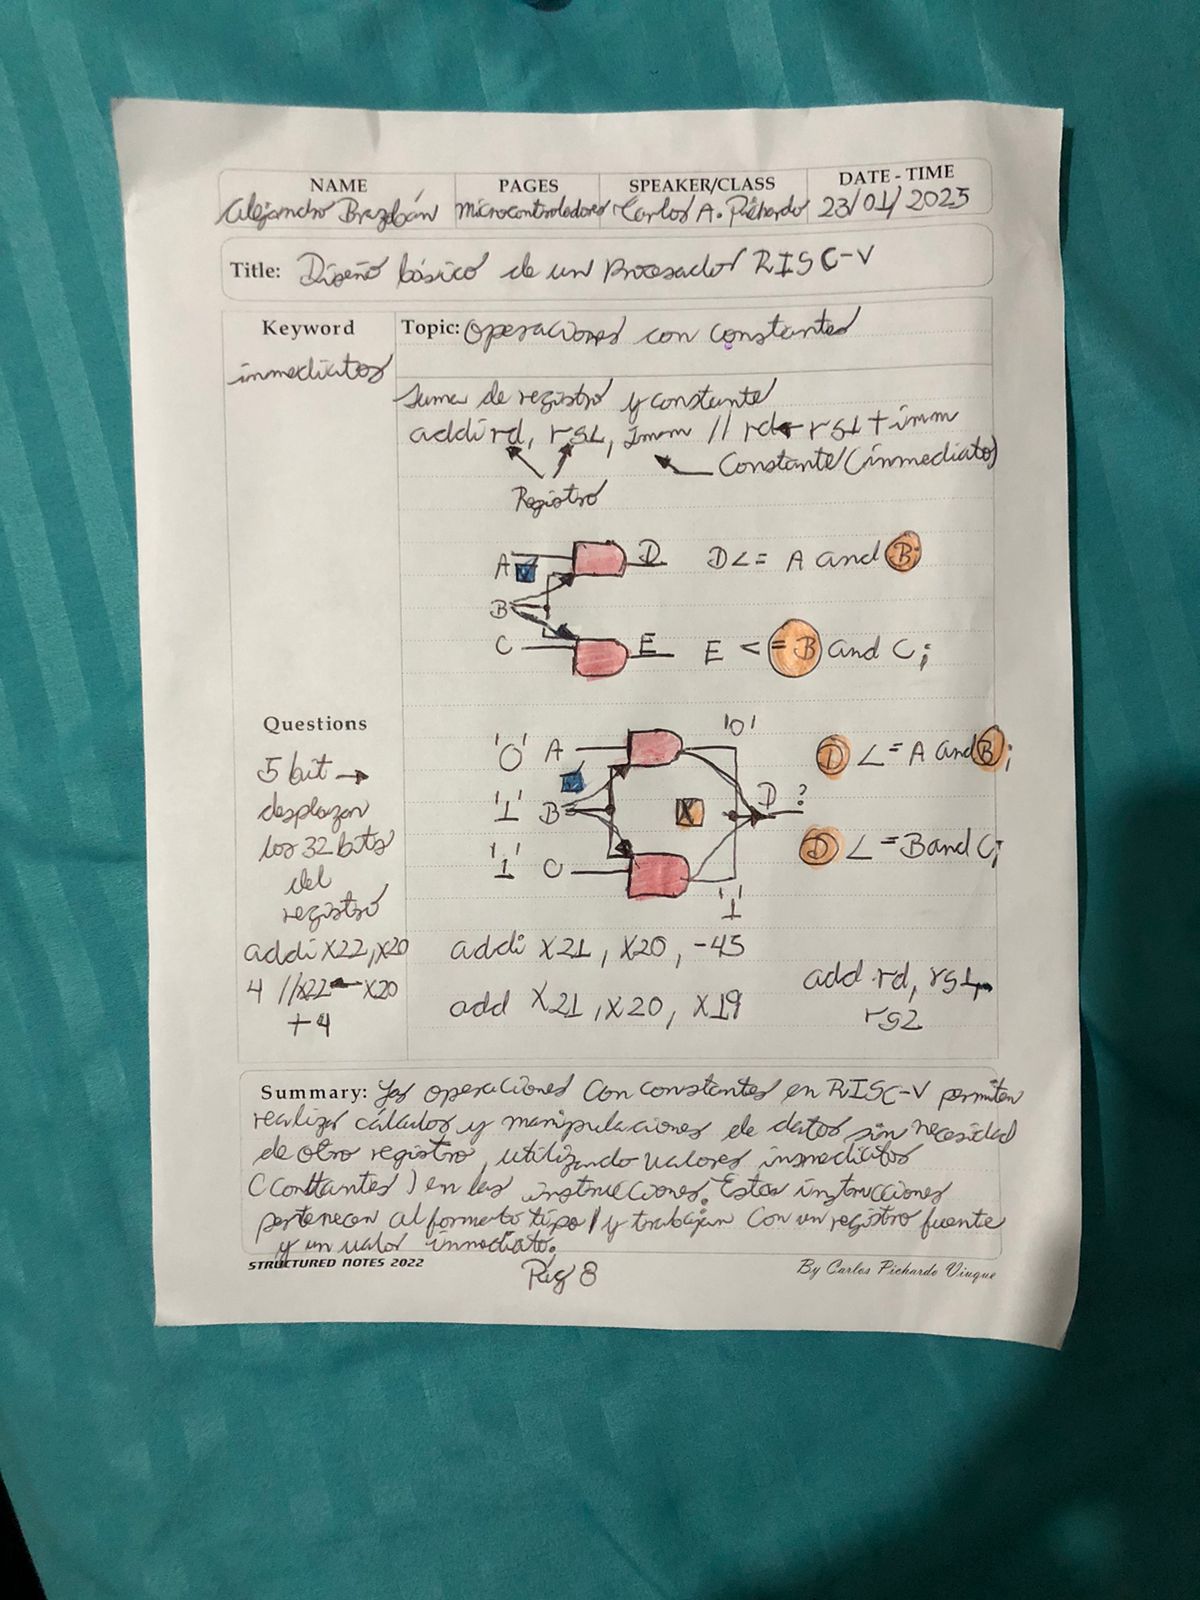 NAME PAGES SPEAKER/CLASS DATE - TIME
Alejandro Brazobán Microcontroladores Carlos A. Pichardo 23/01/2025
Title: Diseño básico de un Procesador RISC-V
Keyword
inmediatos
Topic: Operaciones con constantes
Suma de registro y constante
addi rd, rs1, Imm // rd ← rs1 + imm
Constante (inmediato)
Registro
A D D <= A and B;
B
C E E <= B and C;
Questions
5 bit →
desplazan
los 32 bits
del
registro
addi X22, X20
4 // X22 ← X20
+ 4
'0' A '0' D <= A and B;
'1' B X D ?
'1' C '1' D <= B and C;
addi X21, X20, -45
add X21, X20, X19
add rd, rs1,
rs2
Summary: Las operaciones con constantes en RISC-V permiten
realizar cálculos y manipulaciones de datos sin necesidad
de otro registro, utilizando valores inmediatos
(constantes) en las instrucciones. Estas instrucciones
pertenecen al formato tipo I y trabajan con un registro fuente
y un valor inmediato.
STRUCTURED NOTES 2022
Pág 8
By Carlos Pichardo Viuque